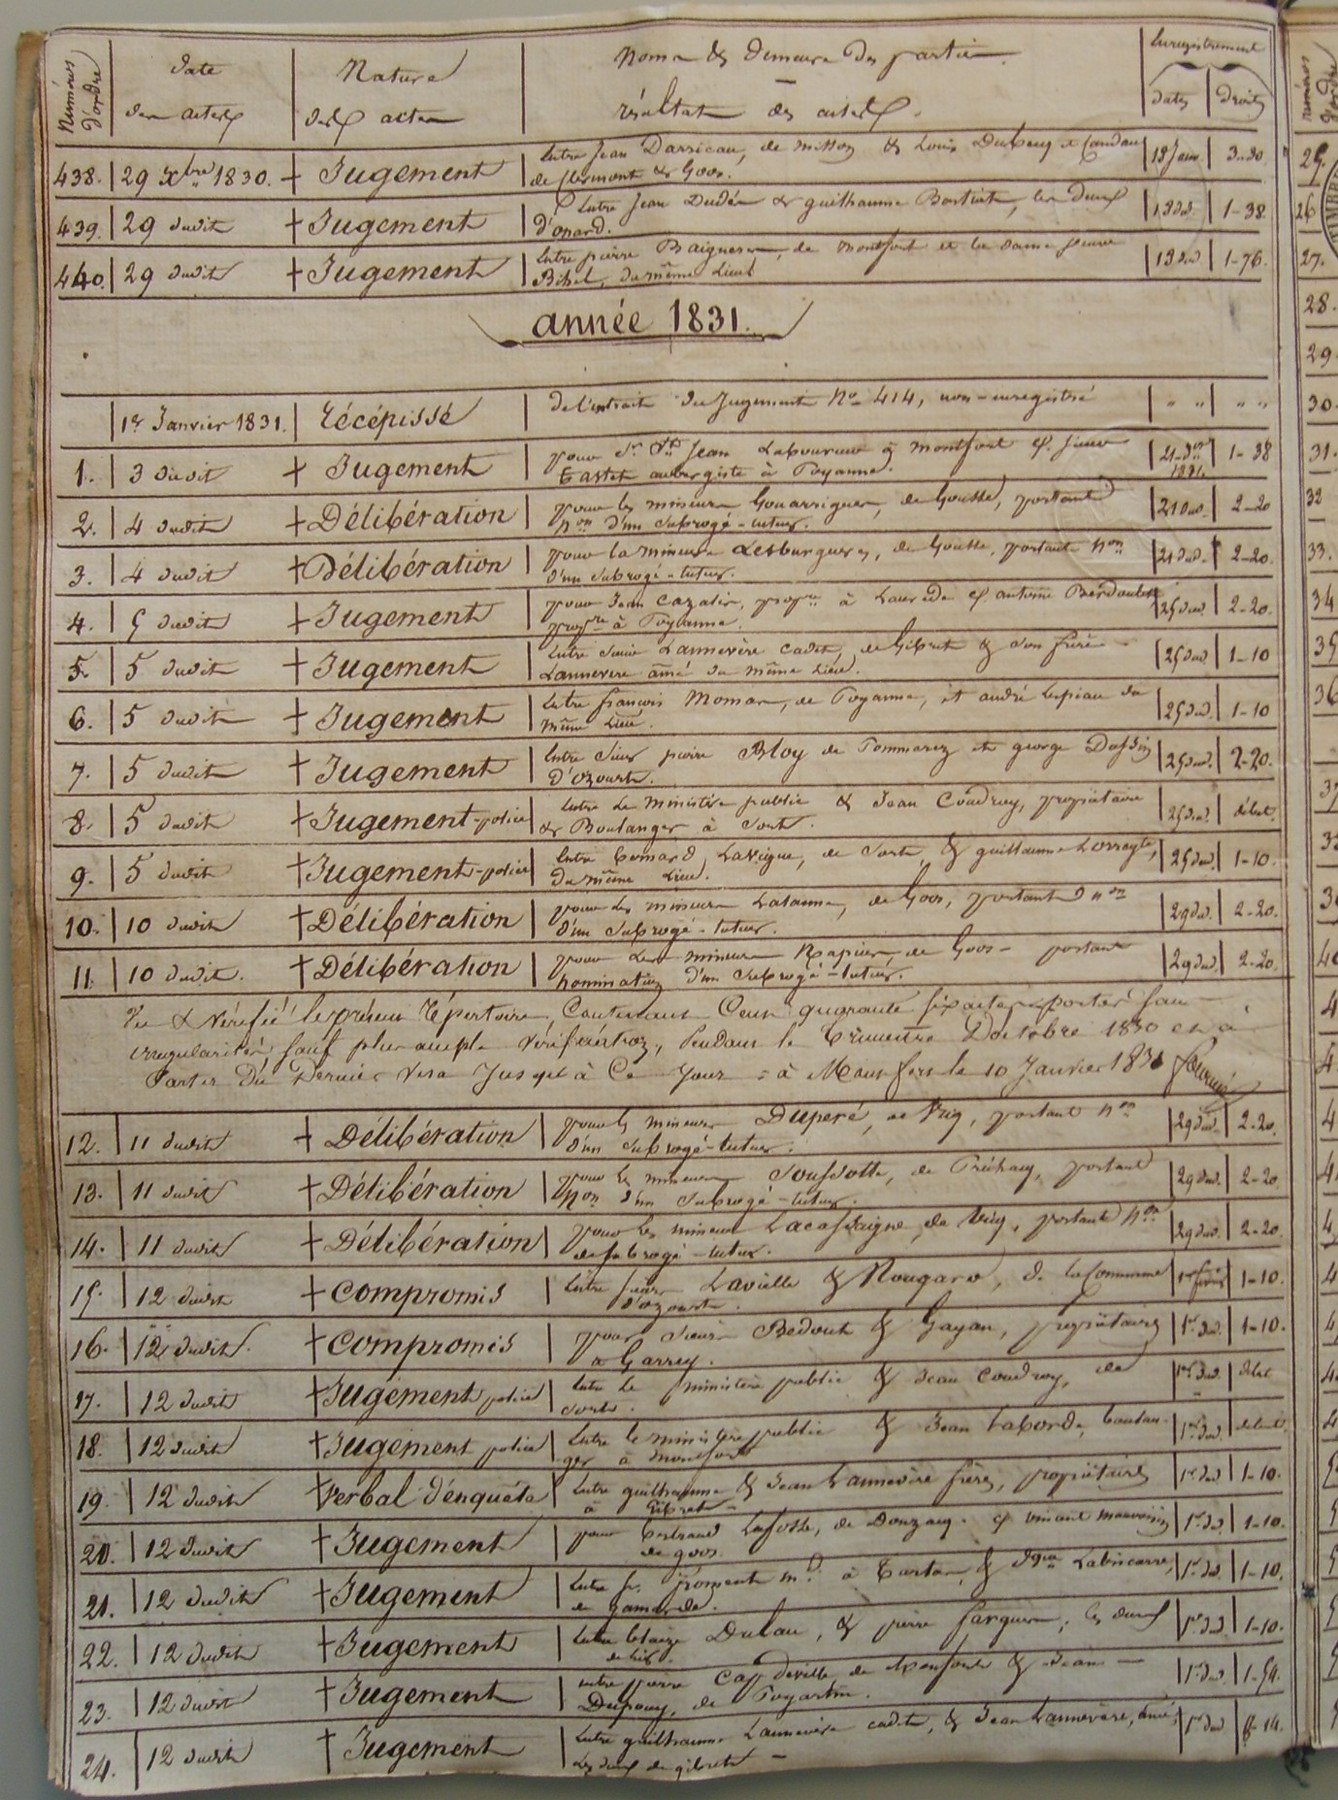 Numéros d'ordre | date des actes | Nature des actes | Noms & demeure des parties — résultat des actes | Enregistrement dates | droits
438. | 29 Xbre 1830. | + Jugement | Entre Jean Darricau, de Misson & Louis | 18 Janv. | 3-30
de Clermont & Goos.
439. | 29 dudit | + Jugement | Entre Jean Dudés & guilhaume Bastiat, les deux | 18 dud. | 1-38
d'onard.
440. | 29 dudit | + Jugement | Entre pierre Baigneres, de Montfort et la dame veuve | 18 dud | 1-76.
du même lieu
année 1831.
1er Janvier 1831. | récépissé | de l'extrait du Jugement No 414, non-enregistré | " " | " "
1. | 3 dudit | + Jugement | pour Sr Jean à Montfort & sieur | 21 | 1-38
Tastet aubergiste à Poyanne. 1831
2. | 4 dudit | + Délibération | pour les mineurs Gouarrigues, de Gousse, portant | 21 dud. | 2-20
non d'un subrogé-tuteur.
3. | 4 dudit | + Délibération | pour la mineure Lesburgueres, de Gousse, portant non | 21 dud. | 2-20.
d'un subrogé-tuteur.
4. | 5 dudit | + Jugement | pour Jean Cazalis, propre à Laurède & antoine | 25 dud | 2-20.
propre à Poyanne.
5. | 5 dudit | + Jugement | Entre sieur Lannevère cadet, de Gibret & son frère | 25 dud | 1-10
Lannevere ainé du même lieu.
6. | 5 dudit | + Jugement | Entre françois Momas, de Poyanne, et andré Lespiau du | 25 dud. | 1-10
même lieu.
7. | 5 dudit | + Jugement | Entre sieur pierre Bloy de Pommarez et george | 25 dud. | 2-20.
d'ozourt.
8. | 5 dudit | + Jugement-police | Entre le ministère public & Jean Coudroy, propriétaire | 25 dud. | débet.
& Boulanger à Sort.
9. | 5 dudit | + Jugement-police | Entre bernard Lavigne, de Sort, & guilhaume Lorreyte, | 25 dud. | 1-10.
du même lieu.
10. | 10 dudit | + Délibération | pour les mineurs Lalanne, de Goos, portant non | 29 dud. | 2-20.
d'un subrogé-tuteur.
11. | 10 dudit. | + Délibération | pour les mineurs Rapin, de Goos - portant | 29 dud. | 2-20.
nomination d'un subrogé-tuteur.
Vu & Vérifié le présent répertoire, Contenant Cent quarante six actes portés sans
irregularités, sauf plus ample Vérification, Pendant le trimestre D'octobre 1830 et à
Partir Du Dernier Visa Jusqu'à Ce Jour = à Montfort le 10 Janvier 1831
12. | 11 dudit | + Délibération | pour les mineurs Duperé, de Vicq, portant non | 29 dud. | 2-20.
d'un subrogé-tuteur.
13. | 11 dudit | + Délibération | pour les mineurs, de Préchacq, portant | 29 dud. | 2-20
non d'un subrogé-tuteur.
14. | 11 dudit | + Délibération | pour les mineurs Lacassaigne, de Vicq, portant non | 29 dud. | 2-20.
de subrogé-tuteur.
15. | 12 dudit | + Compromis | Entre sieurs Laville & Nougaro, de la Commune | 1er | 1-10.
d'ozourt.
16. | 12 dudit. | + Compromis | pour sieurs Bedout & Gayan, propriétaires | 1er dud. | 1-10.
à Garrey.
17. | 12 dudit | + Jugement police | Entre le ministère public & Jean Coudroy, de | 1er dud. | débet
Sort.
18. | 12 dudit | + Jugement police | Entre le ministère public & Jean Laborde, boulan- | 1er dud. | débet.
ger à Montfort
19. | 12 dudit | + Verbal d'enquête | Entre guilhaume & Jean Lannevère frères, propriétaires | 1er dud | 1-10.
à Gibret -
20. | 12 dudit | + Jugement | pour bertrand Lafosse, de Donzacq. & vincent | 1er dud. | 1-10.
de goos.
21. | 12 dudit | + Jugement | Entre fr. froment md. à Tartas, & Labiscarre, | 1er dud. | 1-10.
de gamarde.
22. | 12 dudit | + Jugement | Entre blaize Dulau, & pierre fargues, les deux | 1er dud. | 1-10.
23. | 12 dudit | + Jugement | entre pierre Capdeville de Montfort & Jean | 1er dud. | 1-54.
Dupouy, de Poyartin.
24. | 12 dudit | + Jugement | Entre guilhaume Lannevère cadet, & Jean Lannevère, ainé, | 1er dud | 14.
Les deux de gibret -
numéros
25.
26
27.
28.
29.
30.
31.
32
33.
34
35
36